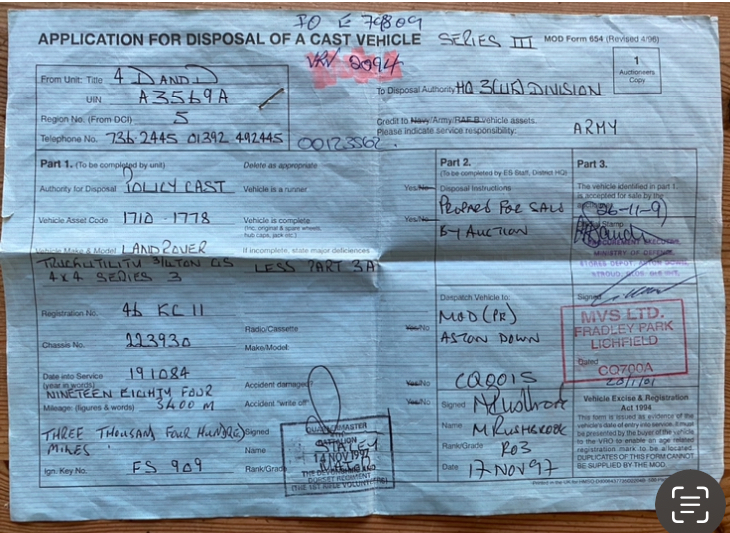 IO E 79809
APPLICATION FOR DISPOSAL OF A CAST VEHICLE SERIES III MOD Form 654 (Revised 4/96)
VRN 2094
1
Auctioneers
Copy
From Unit: Title 4 D AND D
UIN A3569A
Region No. (From DCI) 5
Telephone No. 736 2445 01392 492445
00123562.
To Disposal Authority HQ 3(UK) DIVISION
Credit to Navy/Army/RAF B vehicle assets.
Please indicate service responsibility: ARMY
Part 1. (To be completed by unit) Delete as appropriate
Authority for Disposal POLICY CAST Vehicle is a runner Yes/No
Vehicle Asset Code 1710-1778 Vehicle is complete Yes/No
(inc. original & spare wheels,
hub caps, jack etc.)
Vehicle Make & Model LANDROVER If incomplete, state major deficiences
TRUCK UTILITY 3/4 TON GS LESS PART 3A
4x4 SERIES 3
Registration No. 46 KC 11
Radio/Cassette Yes/No
Chassis No. 223930 Make/Model:
Date into Service 191084
(year in words) NINETEEN EIGHTY FOUR Accident damaged? Yes/No
Mileage: (figures & words) 3400 M Accident "write off" Yes/No
THREE THOUSAND FOUR HUNDRED Signed
MILES Name
Ign. Key No. FS 909 Rank/Grade
QUARTERMASTER
BATTALION
14 NOV 1997
THE DEVONSHIRE AND
DORSET REGIMENT
(THE 1ST RIFLE VOLUNTEERS)
Part 2.
(To be completed by ES Staff, District HQ)
Disposal Instructions
PREPARE FOR SALE
BY AUCTION
Despatch Vehicle to:
MOD (PE)
ASTON DOWN
CQ001S
Signed
Name M RUSHBROOK
Rank/Grade RO3
Date 17 NOV 97
Part 3.
The vehicle identified in part 1.
is accepted for sale by the
26-11-97
Stamp
PROCUREMENT EXECUTIVE
MINISTRY OF DEFENCE
STORES DEPOT, ASTON DOWN,
STROUD, GLOS.
Signed
MVS LTD.
FRADLEY PARK
LICHFIELD
Dated
CQ700A
20/1/01
Vehicle Excise & Registration
Act 1994
This form is issued as evidence of the
vehicle's date of entry into service. It must
be presented by the buyer of the vehicle
to the VRO to enable an age related
registration mark to be allocated.
DUPLICATES OF THIS FORM CANNOT
BE SUPPLIED BY THE MOD.